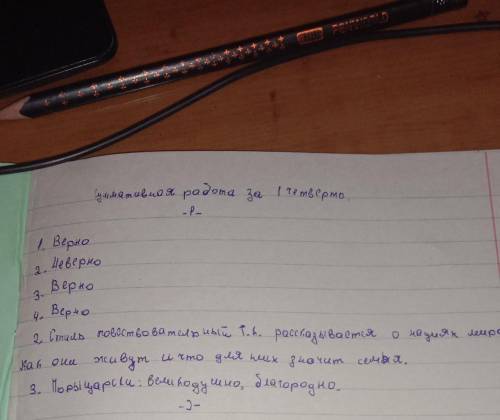 Суммативная работа за 1 четверть.
-1-
1. Верно
2. Неверно
3. Верно
4. Верно
2. Стиль повествовательный т.к. рассказывается о нациях мира
как они живут и что для них значит семья.
3. Порыцарски: великодушно, благородно.
-2-